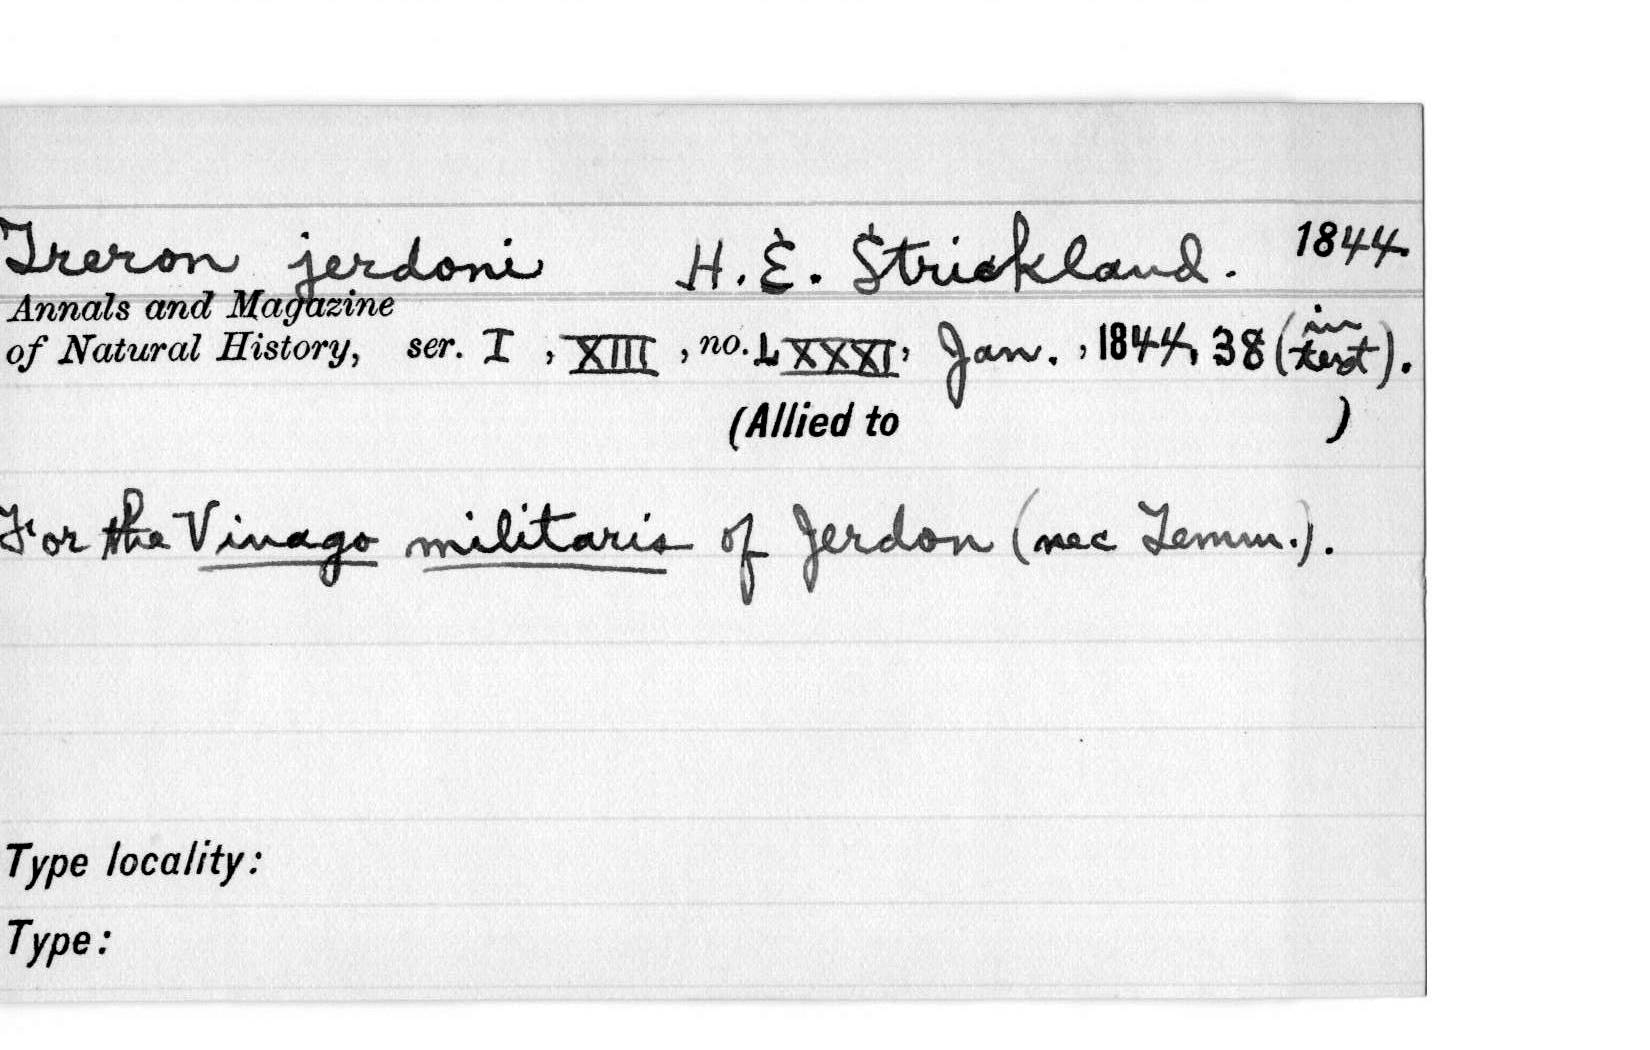 Treron jerdoni H. E. Strickland. 1844.
Annals and Magazine
of Natural History, ser. I , XIII , no. LXXXI, Jan. , 1844, 38 (in text).
(Allied to )
For the Vinago militaris of Jerdon (nec Temm.).
Type locality:
Type: